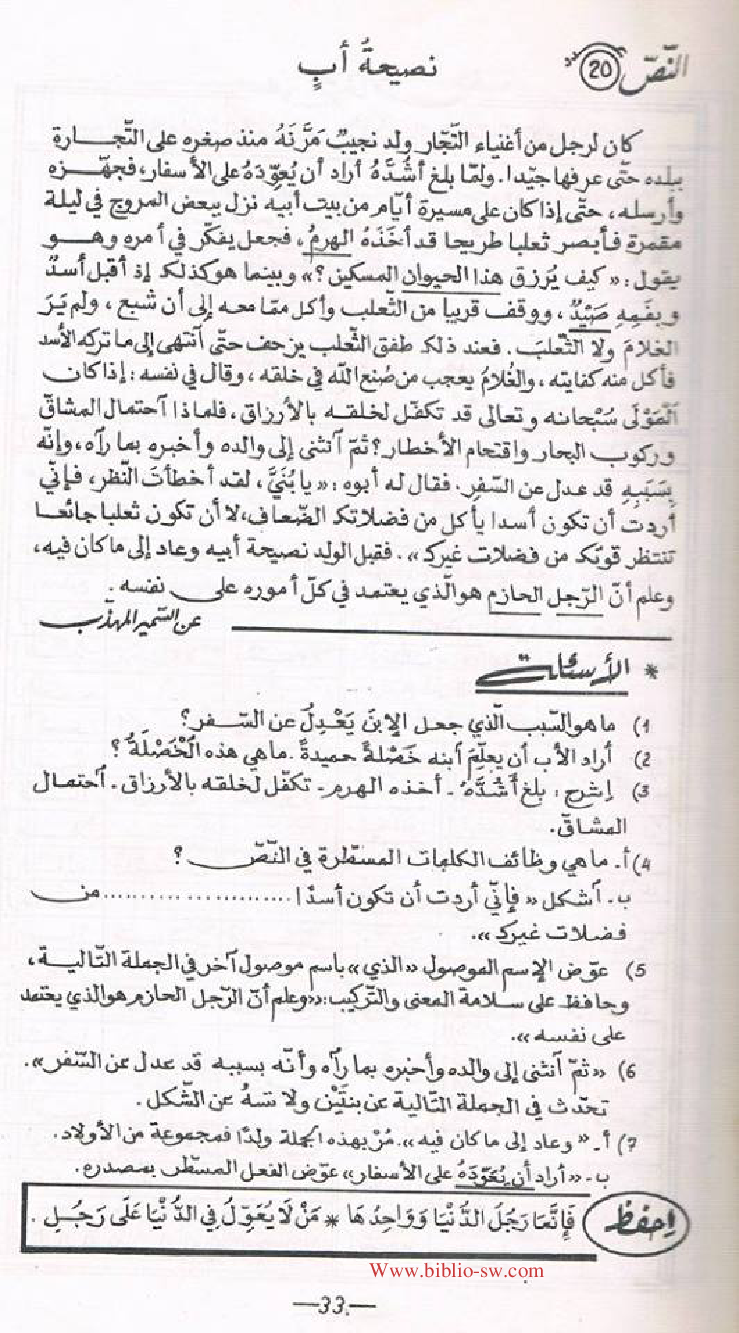 النّصّ 20 نصيحةُ أبٍ
كان لرجل من أغنياء التّجّار ولد نجيبٌ مَرَّنَهُ منذ صغره على التّجارة
ببلده حتّى عرفها جيّدا. ولمّا بلغ أَشُدَّهُ أراد أن يُعَوِّدَهُ على الأسفار، فجهّزه
وأرسله، حتّى إذا كان على مسيرة أيّام من بيت أبيه نزل ببعض المروج في ليلة
مقمرة فأبصر ثعلبا طريحا قد أَخَذَهُ الهرمُ، فجعل يفكّر في أمره وهو
يقول: «كيف يُرزق هذا الحيوان المسكين؟» وبينما هو كذلك إذ أقبل أسدٌ
وبفمِهِ صَيْدٌ، ووقف قريبا من الثّعلب وأكل ممّا معه إلى أن شبع، ولم يَرَ
الغلامَ ولا الثّعلبَ. فعند ذلك طفق الثّعلب يزحف حتّى آنتهى إلى ما تركه الأسد
فأكل منه كفايته، والغُلامُ يعجب من صُنع الله في خلقه، وقال في نفسه: إذا كان
آلْمَوْلَى سُبْحانه وتعالى قد تكفّل لخلقه بالأرزاق، فلماذا آحتمال المشاقّ
وركوب البحار واقتحام الأخطار؟ ثمّ آنثنى إلى والده وأخبره بما رآه، وإنّه
بِسَبَبِهِ قد عدل عن السّفر. فقال له أبوه: «يا بُنَيَّ، لقد أخطأتَ النّظر، فإنّي
أردت أن تكون أسدا يأكل من فضلاتك الضّعاف، لا أن تكون ثعلبا جائعا
تنتظر قوتك من فضلات غيرك». فقبل الولد نصيحة أبيه وعاد إلى ما كان فيه،
وعلم أنّ الرّجل الحازم هو الّذي يعتمد في كلّ أموره على نفسه.
عن السّمير المهذّب
* الأسئلة
1) ما هو السّبب الّذي جعل الإبنَ يَعْدِلُ عن السّفر؟
2) أراد الأب أن يعلّمَ آبنه خَصْلةً حميدةً. ما هي هذه الْخَصْلَةُ؟
3) اِشرح: بلغ أَشُدَّهُ ـ أخذه الهرم ـ تكفّل لخلقه بالأرزاق ـ آحتمال
المشاقّ.
4) أ ـ ما هي وظائف الكلمات المسطّرة في النّصّ؟
ب ـ آشكل «فإنّي أردت أن تكون أسدًا...................... من
فضلات غيرك».
5) عوّض الإسم الموصول «الذي» باسم موصول آخر في الجملة التّالية،
وحافظ على سلامة المعنى والتّركيب: «وعلم أنّ الرّجل الحازم هو الذي يعتمد
على نفسه».
6) «ثمّ آنثنى إلى والده وأخبره بما رآه وأنّه بسببه قد عدل عن السّفر».
تحدّث في الجملة التّالية عن بنتَيْن ولا تسهُ عن الشّكل.
7) أ ـ «وعاد إلى ما كان فيه». مُرْ بهذه الجملة ولدًا فمجموعة من الأولاد.
ب ـ «أراد أن يُعَوِّدَهُ على الأسفار» عوّض الفعل المسطّر بمصدره.
اِحفظ فَإِنَّمَا رَجُلُ الدُّنْيَا وَوَاحِدُهَا * مَنْ لَا يُعَوِّلُ فِي الدُّنْيَا عَلَى رَجُلِ.
Www.biblio-sw.com
—33.—